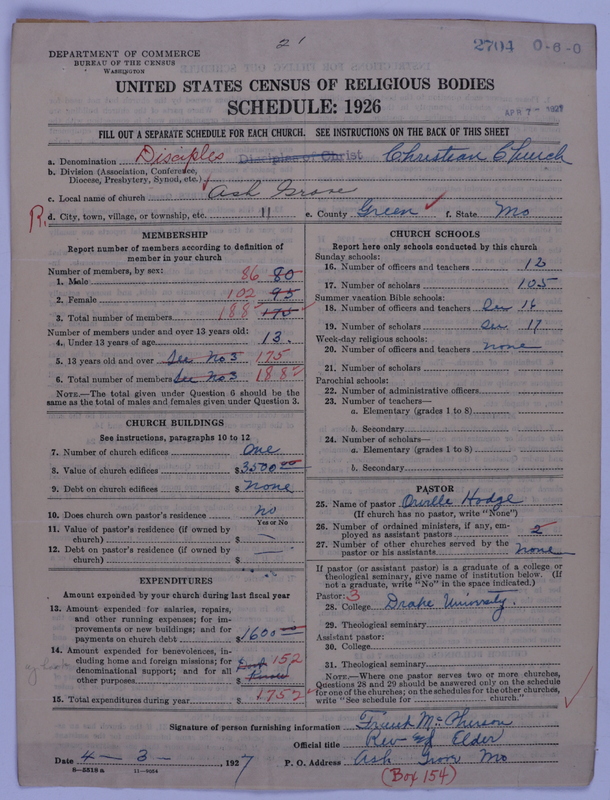 2704 0-6-0
DEPARTMENT OF COMMERCE
BUREAU OF THE CENSUS
WASHINGTON
UNITED STATES CENSUS OF RELIGIOUS BODIES
SCHEDULE: 1926
APR 7 1927
FILL OUT A SEPARATE SCHEDULE FOR EACH CHURCH. SEE INSTRUCTIONS ON THE BACK OF THIS SHEET
a. Denomination Disciples Disciples of Christ Christian Church
b. Division (Association, Conference, Diocese, Presbytery, Synod, etc.)
c. Local name of church Ash Grove
d. City, town, village, or township, etc. " e. County Green f. State Mo
MEMBERSHIP
Report number of members according to definition of member in your church
Number of members, by sex:
1. Male 86 80
2. Female 102 95
3. Total number of members 188 175
Number of members under and over 13 years old:
4. Under 13 years of age 13.
5. 13 years old and over See No 3 175
6. Total number of members See No 3 188
NOTE.—The total given under Question 6 should be the same as the total of males and females given under Question 3.
CHURCH BUILDINGS
See instructions, paragraphs 10 to 12
7. Number of church edifices One
8. Value of church edifices $3500 00
9. Debt on church edifices $ None
10. Does church own pastor's residence No
Yes or No
11. Value of pastor's residence (if owned by church) $ —
12. Debt on pastor's residence (if owned by church) $ —
EXPENDITURES
Amount expended by your church during last fiscal year
13. Amount expended for salaries, repairs, and other running expenses; for improvements or new buildings; and for payments on church debt $1600 00
14. Amount expended for benevolences, including home and foreign missions; for denominational support; and for all other purposes $ 152
15. Total expenditures during year $1752
CHURCH SCHOOLS
Report here only schools conducted by this church
Sunday schools:
16. Number of officers and teachers 12
17. Number of scholars 105
Summer vacation Bible schools:
18. Number of officers and teachers See 16
19. Number of scholars See 17
Week-day religious schools:
20. Number of officers and teachers None
21. Number of scholars
Parochial schools:
22. Number of administrative officers
23. Number of teachers—
a. Elementary (grades 1 to 8)
b. Secondary
24. Number of scholars—
a. Elementary (grades 1 to 8)
b. Secondary
PASTOR
25. Name of pastor Orville Hodge
(If church has no pastor, write "None")
26. Number of ordained ministers, if any, employed as assistant pastors 2
27. Number of other churches served by the pastor or his assistants None
If pastor (or assistant pastor) is a graduate of a college or theological seminary, give name of institution below. (If not a graduate, write "No" in the space indicated.)
Pastor: 3
28. College Drake University.
29. Theological seminary
Assistant pastor:
30. College
31. Theological seminary
NOTE.—Where one pastor serves two or more churches, Questions 28 and 29 should be answered only on the schedule for one of the churches; on the schedules for the other churches, write "See schedule for church."
Signature of person furnishing information McPherson
Official title Elder
Date 4-3-, 1927 P. O. Address Ash Grove Mo
8-5518 a 11-9054
(Box 154)